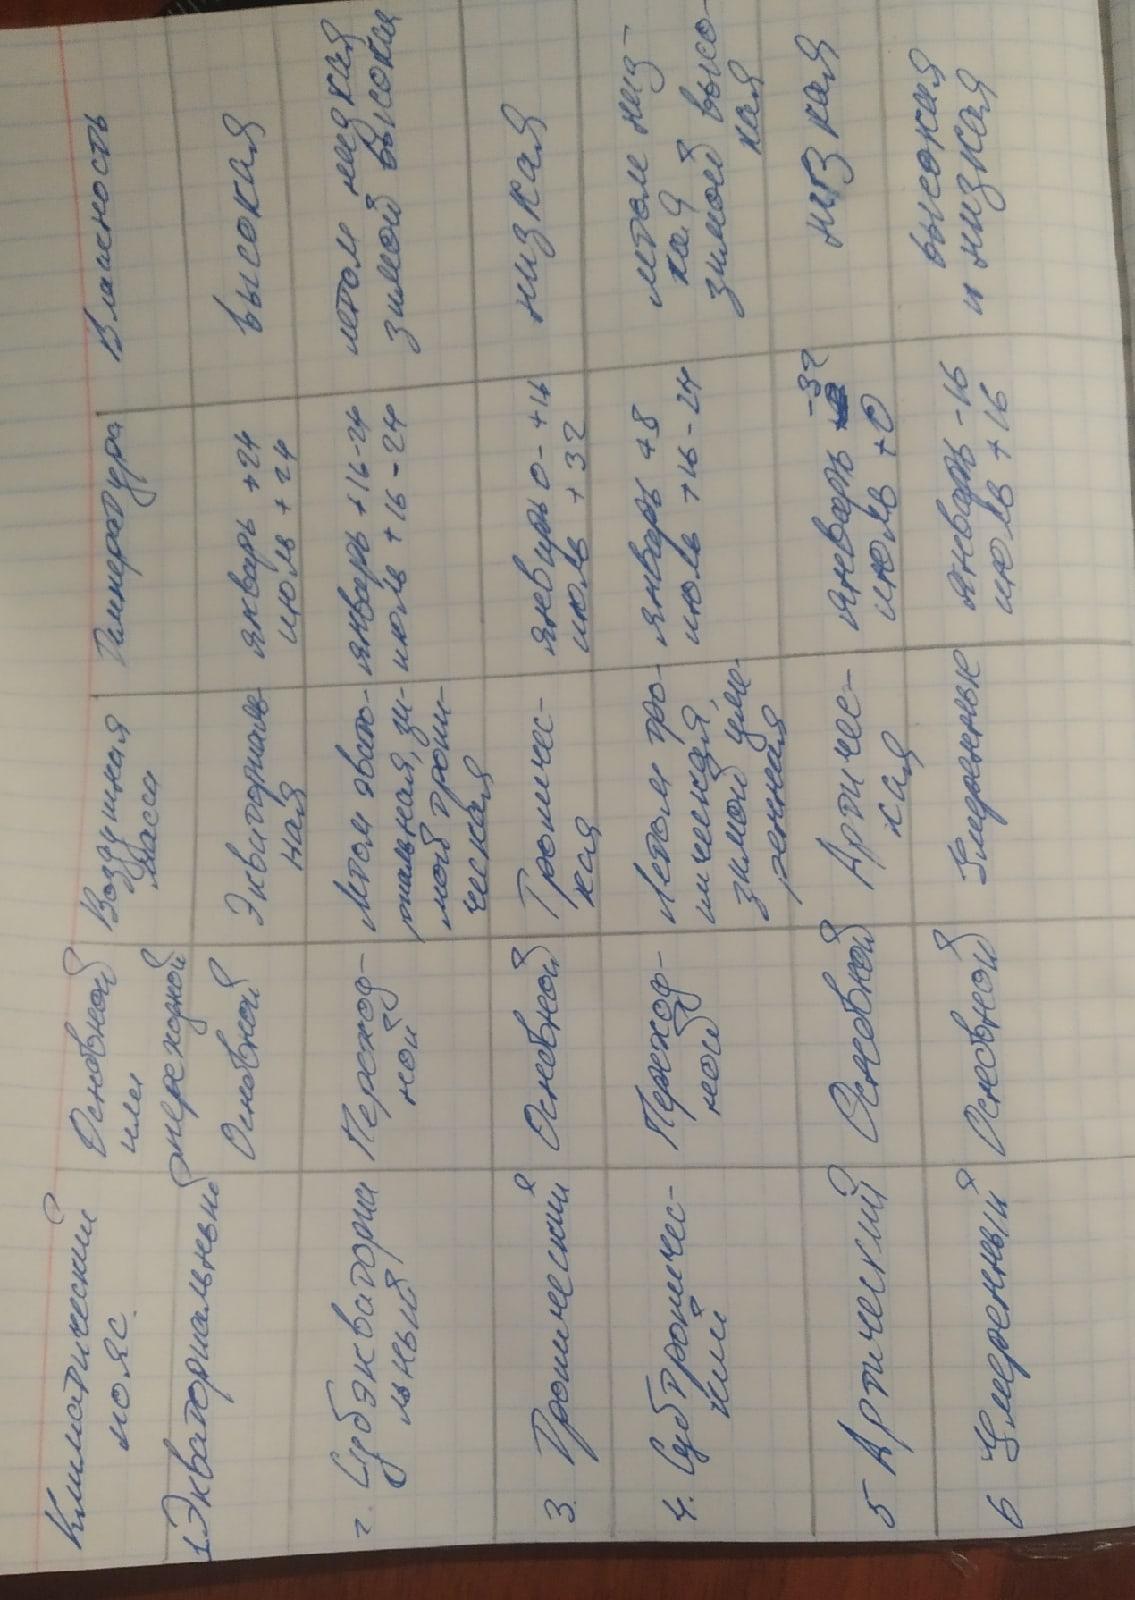 Климатический
пояс
Основной
или
переходной
Воздушная
масса
Температура
Влажность
1. Экваториальный
Основной
Экваториаль
ная
январь +24
июль +24
высокая
2. Субэкватори
льный
Переход-
ной
Летом эквато-
риальная, зи-
мой тропи-
ческая
январь +16-24
июль +16-24
летом низкая
зимой высокая
3. Тропический
Основной
Тропичес-
кая
январь 0-+16
июль +32
низкая
4. Субтропичес-
кий
Переход-
ной
Летом тро-
пическая,
зимой уме-
ренная
январь +8
июль +16-24
летом низ-
кая
зимой высо-
кая
5 Артический
Основной
Артичес-
кая
-32
январь
июль +0
низкая
6 Умеренный
Основной
Умеренные
январь -16
июль +16
высокая
и низкая